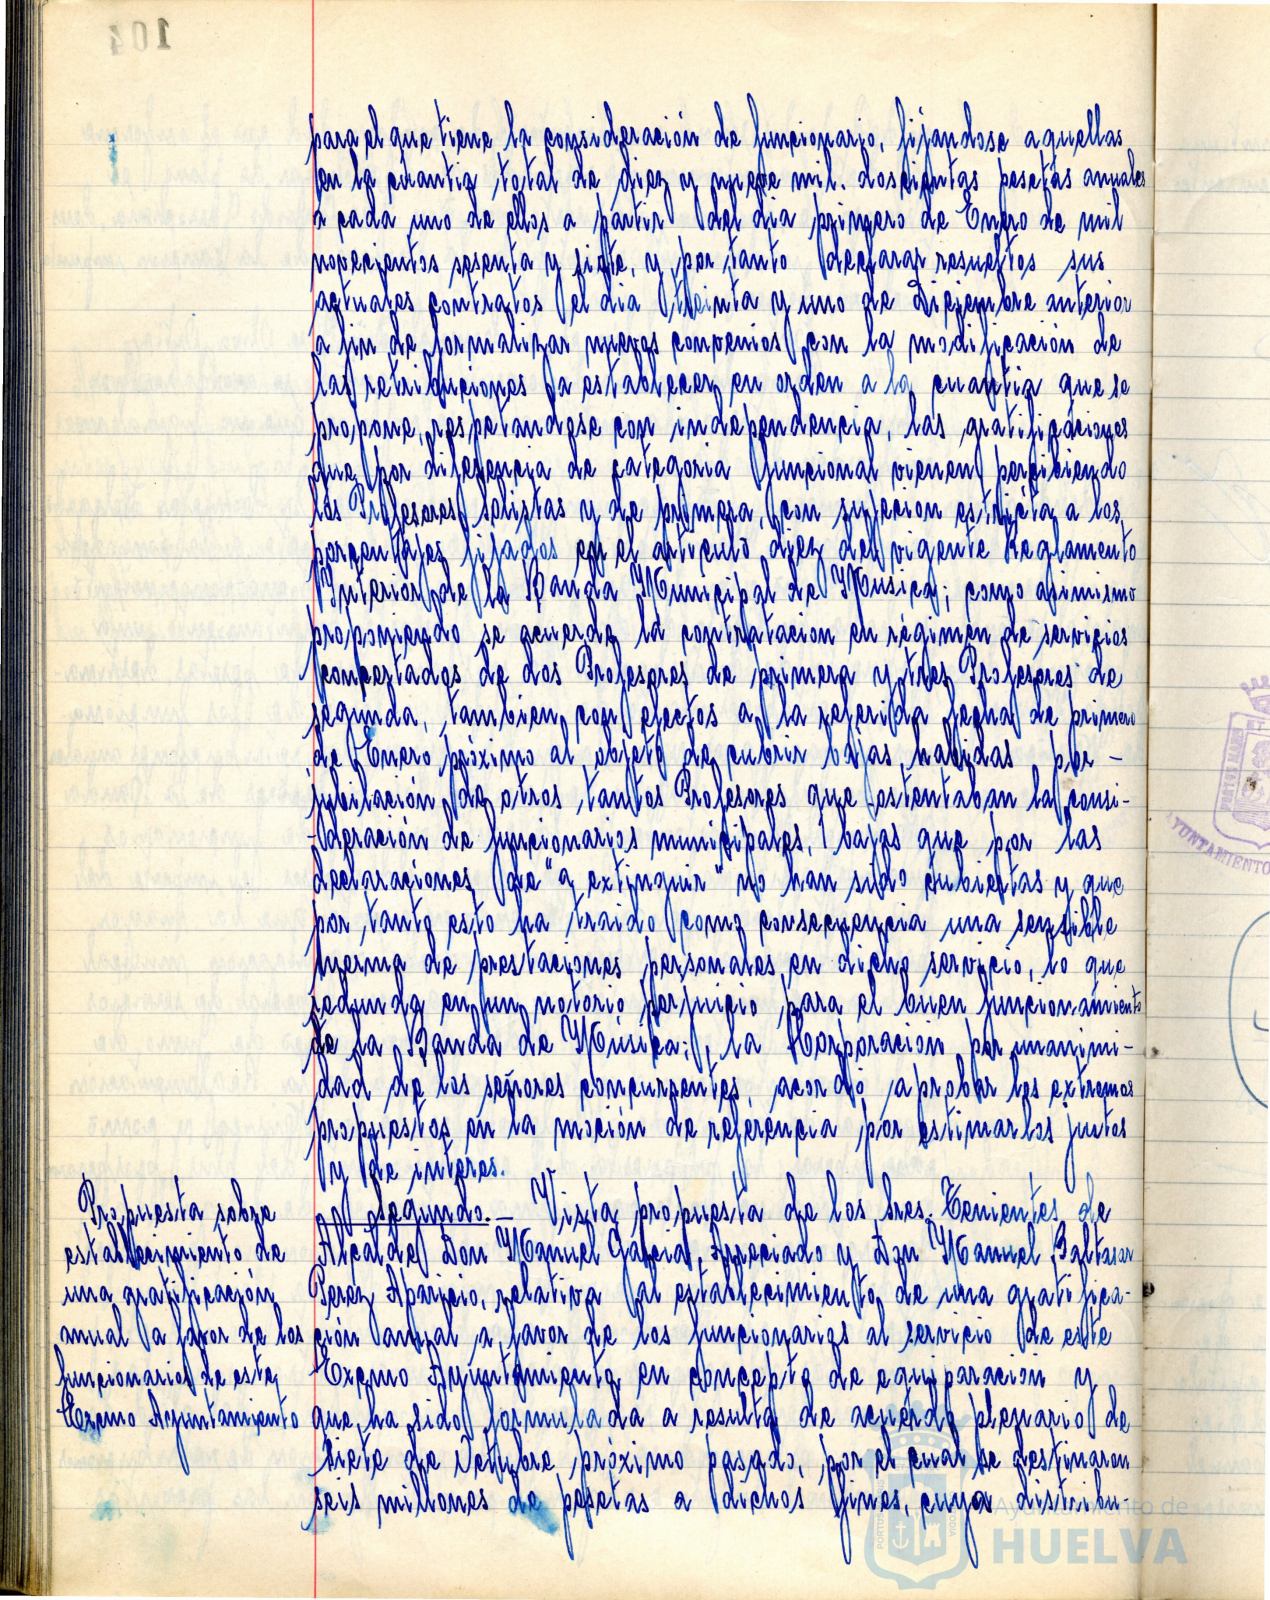 para el que tiene la consideración de funcionario, fijandose aquellas
en la cuantia total de diez y nueve mil doscientas pesetas anuales
a cada uno de ellos a partir del dia primero de Enero de mil
novecientos sesenta y siete, y por tanto declarar resueltos sus
actuales contratos el dia treinta y uno de Diciembre anterior
a fin de formalizar nuevos convenios con la modificación de
las retribuciones a establecer en orden a la cuantia que se
propone, respetandose con independencia, las gratificaciones
que por diferencia de categoria funcional vienen percibiendo
los Profesores Solistas y de primera, con sujecion estricta a los
porcentajes fijados en el articulo diez del vigente Reglamento
Interior de la Banda Municipal de Musica; como asimismo
proponiendo se acuerde la contratacion en régimen de servicios
concertados de dos Profesores de primera y tres Profesores de
segunda, tambien con efectos a la referida fecha de primero
de Enero próximo al objeto de cubrir bajas habidas por -
jubilación de otros tantos Profesores que ostentaban la consi-
deración de funcionarios municipales, bajas que por las
declaraciones de "a extinguir" no han sido cubiertas y que
por tanto esto ha traido como consecuencia una sensible
merma de prestaciones personales en dicho servicio, lo que
redunda en un notorio perjuicio para el buen funcionamiento
de la Banda de Música; la Corporación por unanimi-
dad de los señores concurrentes, acordó aprobar los extremos
propuestos en la moción de referencia por estimarlos justos
y de interés.
Propuesta sobre
establecimiento de
una gratificación
anual a favor de los
funcionarios de este
Excmo Ayuntamiento
segundo. - Vista propuesta de los Sres. Tenientes de
Alcalde Don Manuel Garcia Apreciado y Don Manuel Baltasar
Perez Aparicio, relativa al establecimiento de una gratifica-
ción anual a favor de los funcionarios al servicio de este
Excmo Ayuntamiento en concepto de equiparación y
que ha sido formulada a resulta de acuerdo plenario de
siete de Octubre próximo pasado, por el cual se destinaron
seis millones de pesetas a dichos fines, cuya distribu-
104
AYUNTAMIENTO
Ayuntamiento de
HUELVA